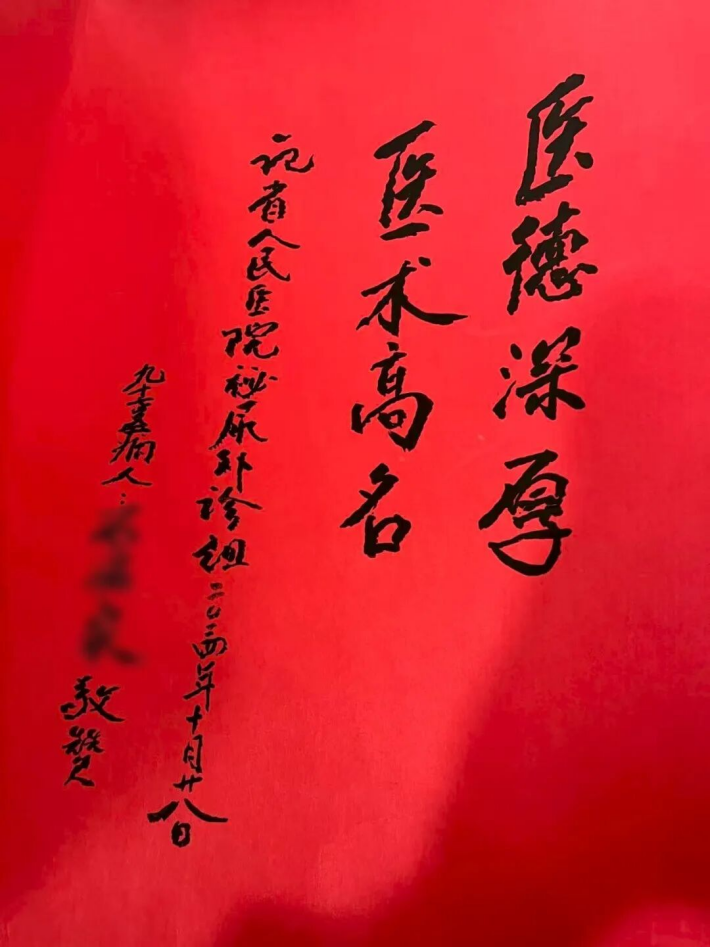 医德深厚
医术高名
记省人民医院祕尿外诊组二〇二四年十月廿八日
九十五病人：
敬赞